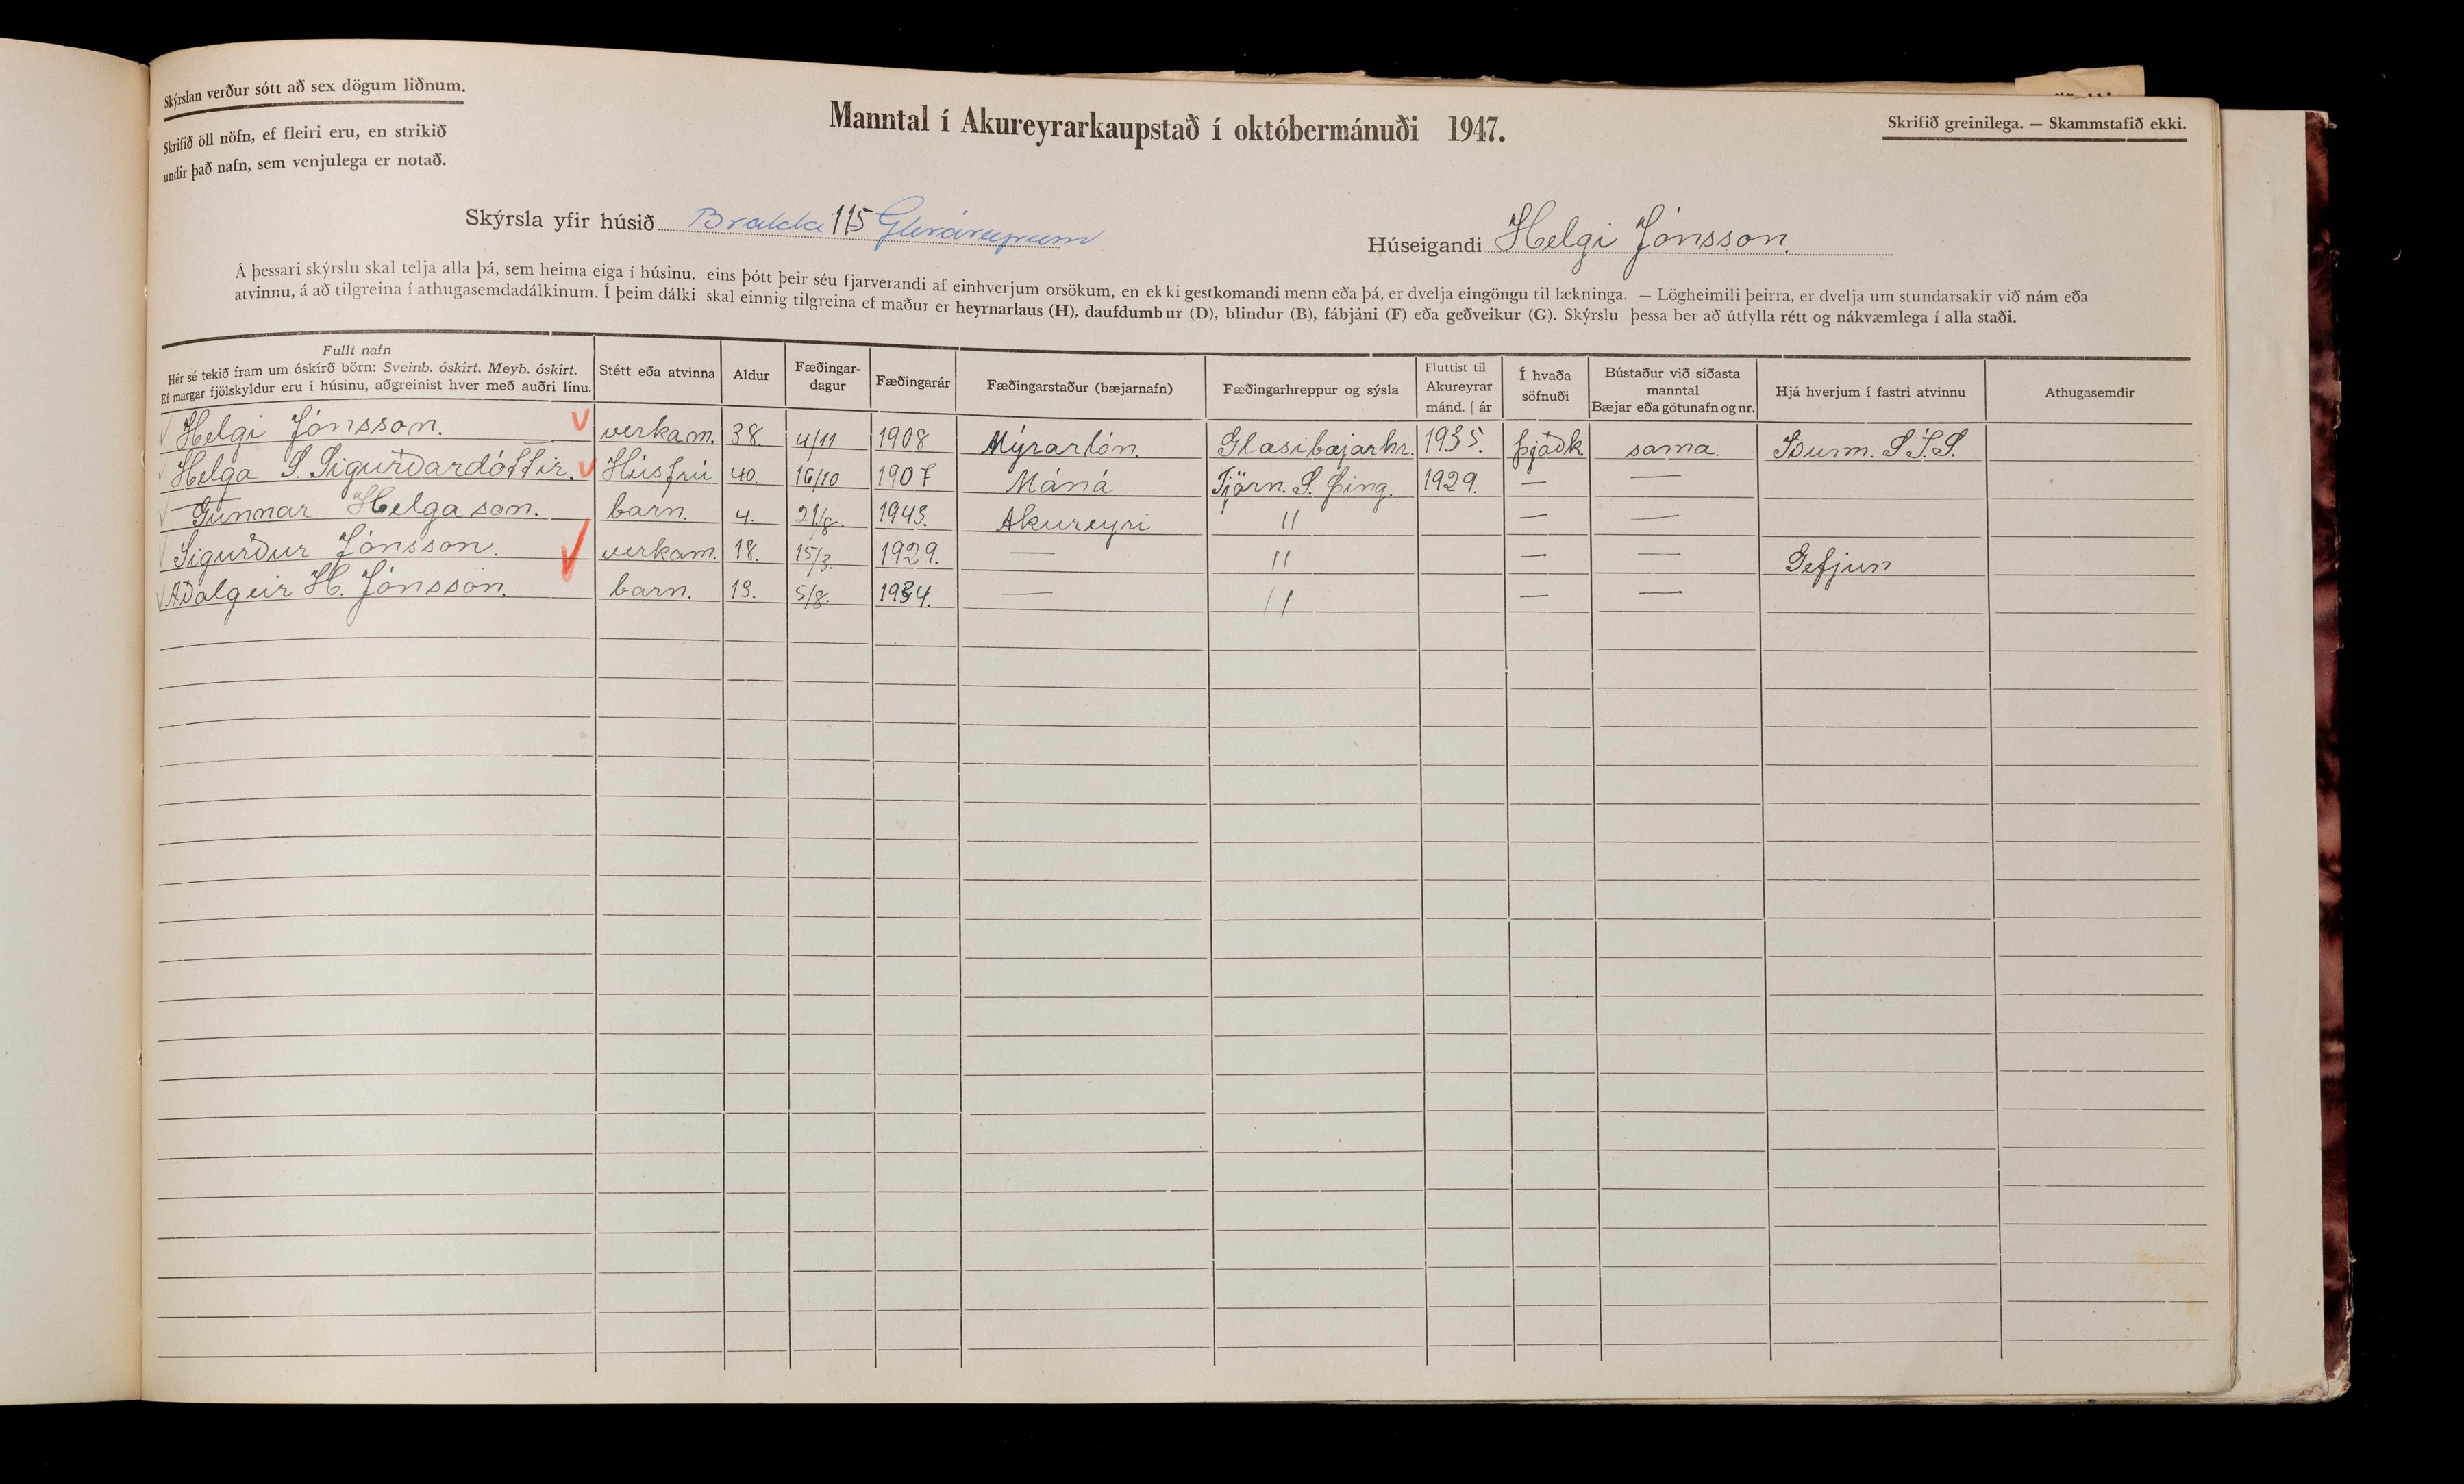 Skýrslan verður sótt að sex dögum liðnum.
Skrifið öll nöfn, ef fleiri eru, en strikið
undir það nafn, sem venjulega er notað.
Manntal í Akureyrarkaupstað í októbermánuði 1947.
Skrifið greinilega. — Skammstafið ekki.
Skýrsla yfir húsið Brakki 115 Gleráreyrum
Húseigandi Helgi Jónsson.
Á þessari skýrslu skal telja alla þá, sem heima eiga í húsinu, eins þótt þeir séu fjarverandi af einhverjum orsökum, en ekki gestkomandi menn eða þá, er dvelja eingöngu til lækninga. — Lögheimili þeirra, er dvelja um stundarsakir við nám eða
atvinnu, á að tilgreina í athugasemdadálkinum. Í þeim dálki skal einnig tilgreina ef maður er heyrnarlaus (H), daufdumbur (D), blindur (B), fábjáni (F) eða geðveikur (G). Skýrslu þessa ber að útfylla rétt og nákvæmlega í alla staði.
Fullt nafn
Hér sé tekið fram um óskírð börn: Sveinb. óskírt. Meyb. óskírt.
Ef margar fjölskyldur eru í húsinu, aðgreinist hver með auðri línu.
Stétt eða atvinna
Aldur
Fæðingar-
dagur
Fæðingarár
Fæðingarstaður (bæjarnafn)
Fæðingarhreppur og sýsla
Fluttist til
Akureyrar
mánd. | ár
Í hvaða
söfnuði
Bústaður við síðasta
manntal
Bæjar eða götunafn og nr.
Hjá hverjum í fastri atvinnu
Athugasemdir
Helgi Jónsson. verkam. 38. 4/11 1908 Mýrarlón. Glæsibæjarhr. 1935. þjóðk. sama.  S.Í.S.
Helga S. Sigurðardóttir. Húsfrú 40. 16/10 1907 Máná Tjörn. S. Þing. 1929. — —
Gunnar Helgason. barn. 4. 21/8. 1943. Akureyri " — —
Sigurður Jónsson. verkam. 18. 15/3. 1929. — " — — Gefjun
Aðalgeir H. Jónsson. barn. 13. 5/8. 1934. — " — —